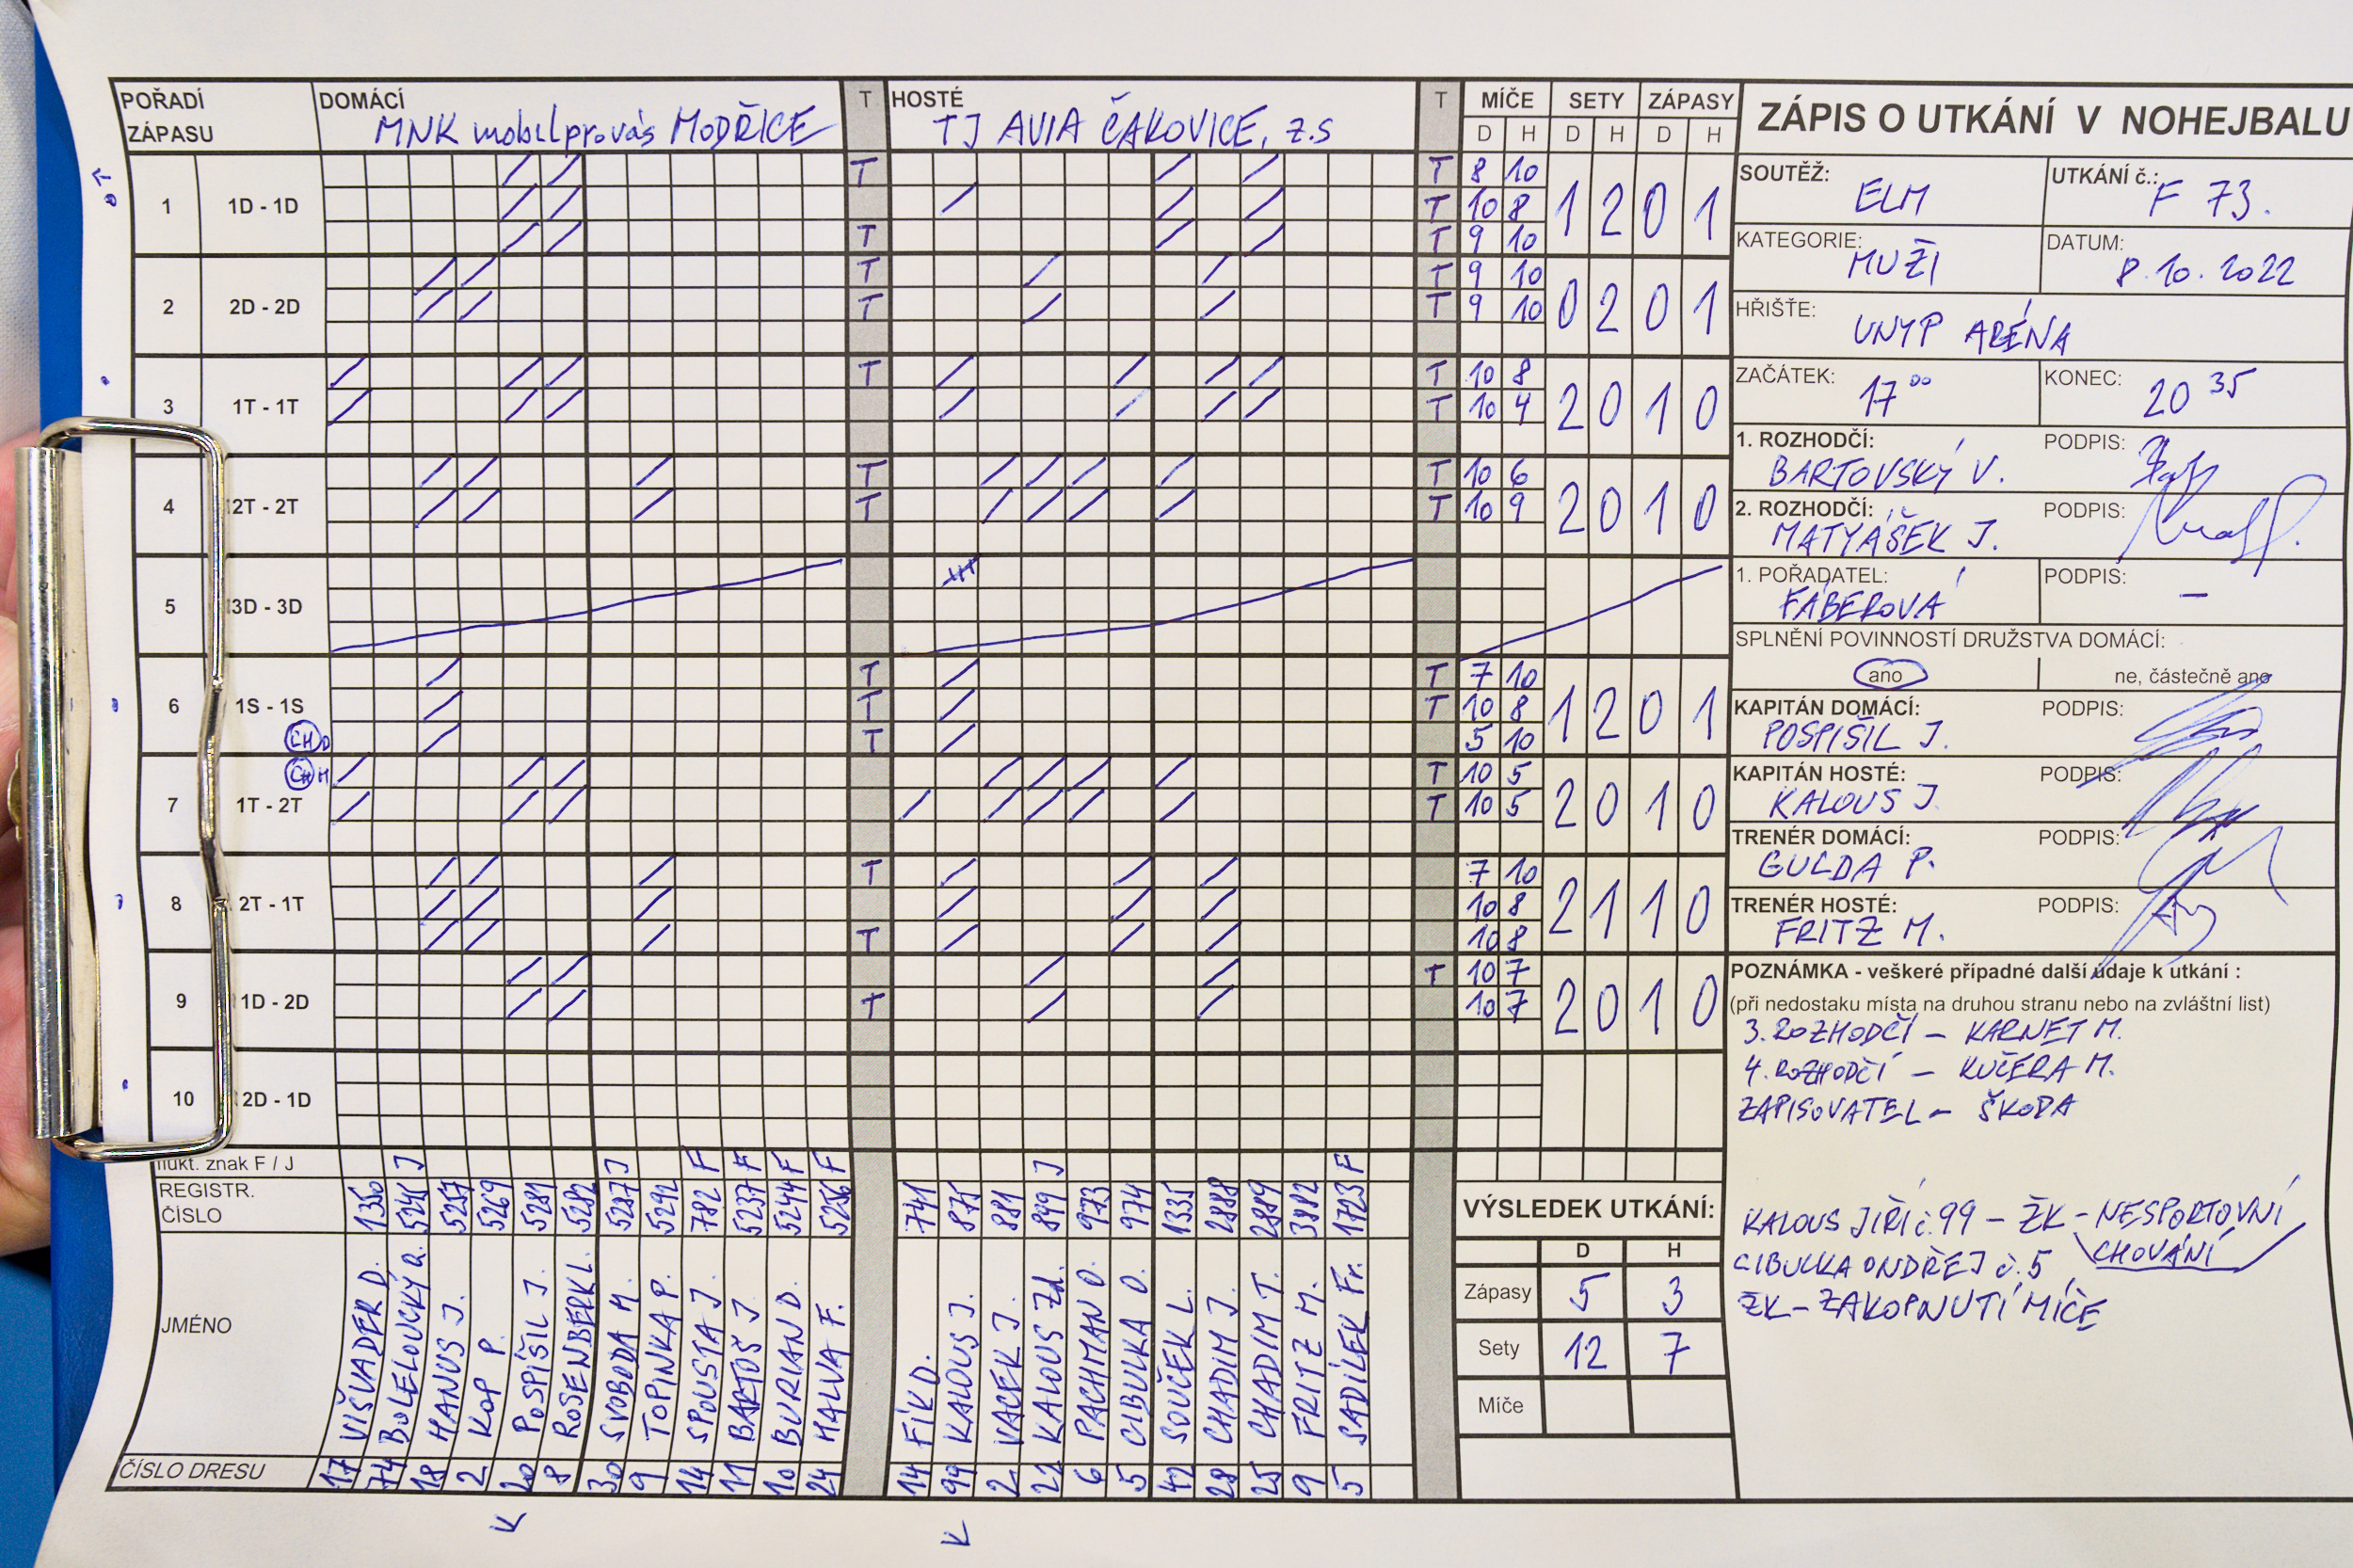 POŘADÍ ZÁPASU
DOMÁCÍ
MNK mobilprovás MODŘICE
T
HOSTÉ
TJ AVIA ČAKOVICE, z.s
T
MÍČE SETY ZÁPASY
D H D H D H
1 1D - 1D T T 8 10
T 10 8 1 2 0 1
T T 9 10
2 2D - 2D T T 9 10
T T 9 10 0 2 0 1
3 1T - 1T T T 10 8
T 10 4 2 0 1 0
4 2T - 2T T T 10 6
T T 10 9 2 0 1 0
5 3D - 3D
6 1S - 1S T T 7 10
T T 10 8 1 2 0 1
CH D T 5 10
CH H
7 1T - 2T T 10 5
T 10 5 2 0 1 0
8 2T - 1T T 7 10
10 8 2 1 1 0
T 10 8
9 1D - 2D T 10 7
T 10 7 2 0 1 0
10 2D - 1D
znak F / J J J F F F F J F
REGISTR. ČÍSLO 1350 5241 5257 5269 5281 5282 5287 5292 782 5237 5244 5256 741 875 881 899 973 974 1335 2888 2889 3882 1723
JMÉNO VIŠVADER D. BOLELOUCKÝ A. HANUS J. KOP P. POSPÍŠIL J. ROSENBERK L. SVOBODA M. TOPINKA P. SPOUSTA J. BARTOŠ J. BURIAN D. HALVA F. FÍK D. KALOUS J. VACEK J. KALOUS Zd. PACHMAN O. CIBULKA O. SOUČEK L. CHADIM J. CHADIM T. FRITZ M. SADÍLEK Fr.
ČÍSLO DRESU 17 74 18 2 20 8 30 9 14 11 10 24 14 99 2 22 6 5 42 28 25 9 5
K K
ZÁPIS O UTKÁNÍ V NOHEJBALU
SOUTĚŽ: ELM
UTKÁNÍ č.: F 73.
KATEGORIE: MUŽI
DATUM: 8.10.2022
HŘIŠTE: UNYP ARÉNA
ZAČÁTEK: 17 00
KONEC: 20 35
1. ROZHODČÍ: PODPIS:
BARTOVSKÝ V.
2. ROZHODČÍ: PODPIS:
MATYÁŠEK J.
1. POŘADATEL: PODPIS:
FÁBEROVÁ –
SPLNĚNÍ POVINNOSTÍ DRUŽSTVA DOMÁCÍ:
ano ne, částečně ano
KAPITÁN DOMÁCÍ: PODPIS:
POSPÍŠIL J.
KAPITÁN HOSTÉ: PODPIS:
KALOUS J.
TRENÉR DOMÁCÍ: PODPIS:
GULDA P.
TRENÉR HOSTÉ: PODPIS:
FRITZ M.
POZNÁMKA - veškeré případné další údaje k utkání :
(při nedostaku místa na druhou stranu nebo na zvláštní list)
3. ROZHODČÍ – KARNET M.
4. ROZHODČÍ – KUČERA M.
ZAPISOVATEL – ŠKODA
KALOUS JIŘÍ č.99 – ŽK – NESPORTOVNÍ
CHOVÁNÍ
CIBULKA ONDŘEJ č.5
ŽK – ZAKOPNUTÍ MÍČE
VÝSLEDEK UTKÁNÍ:
D H
Zápasy 5 3
Sety 12 7
Míče